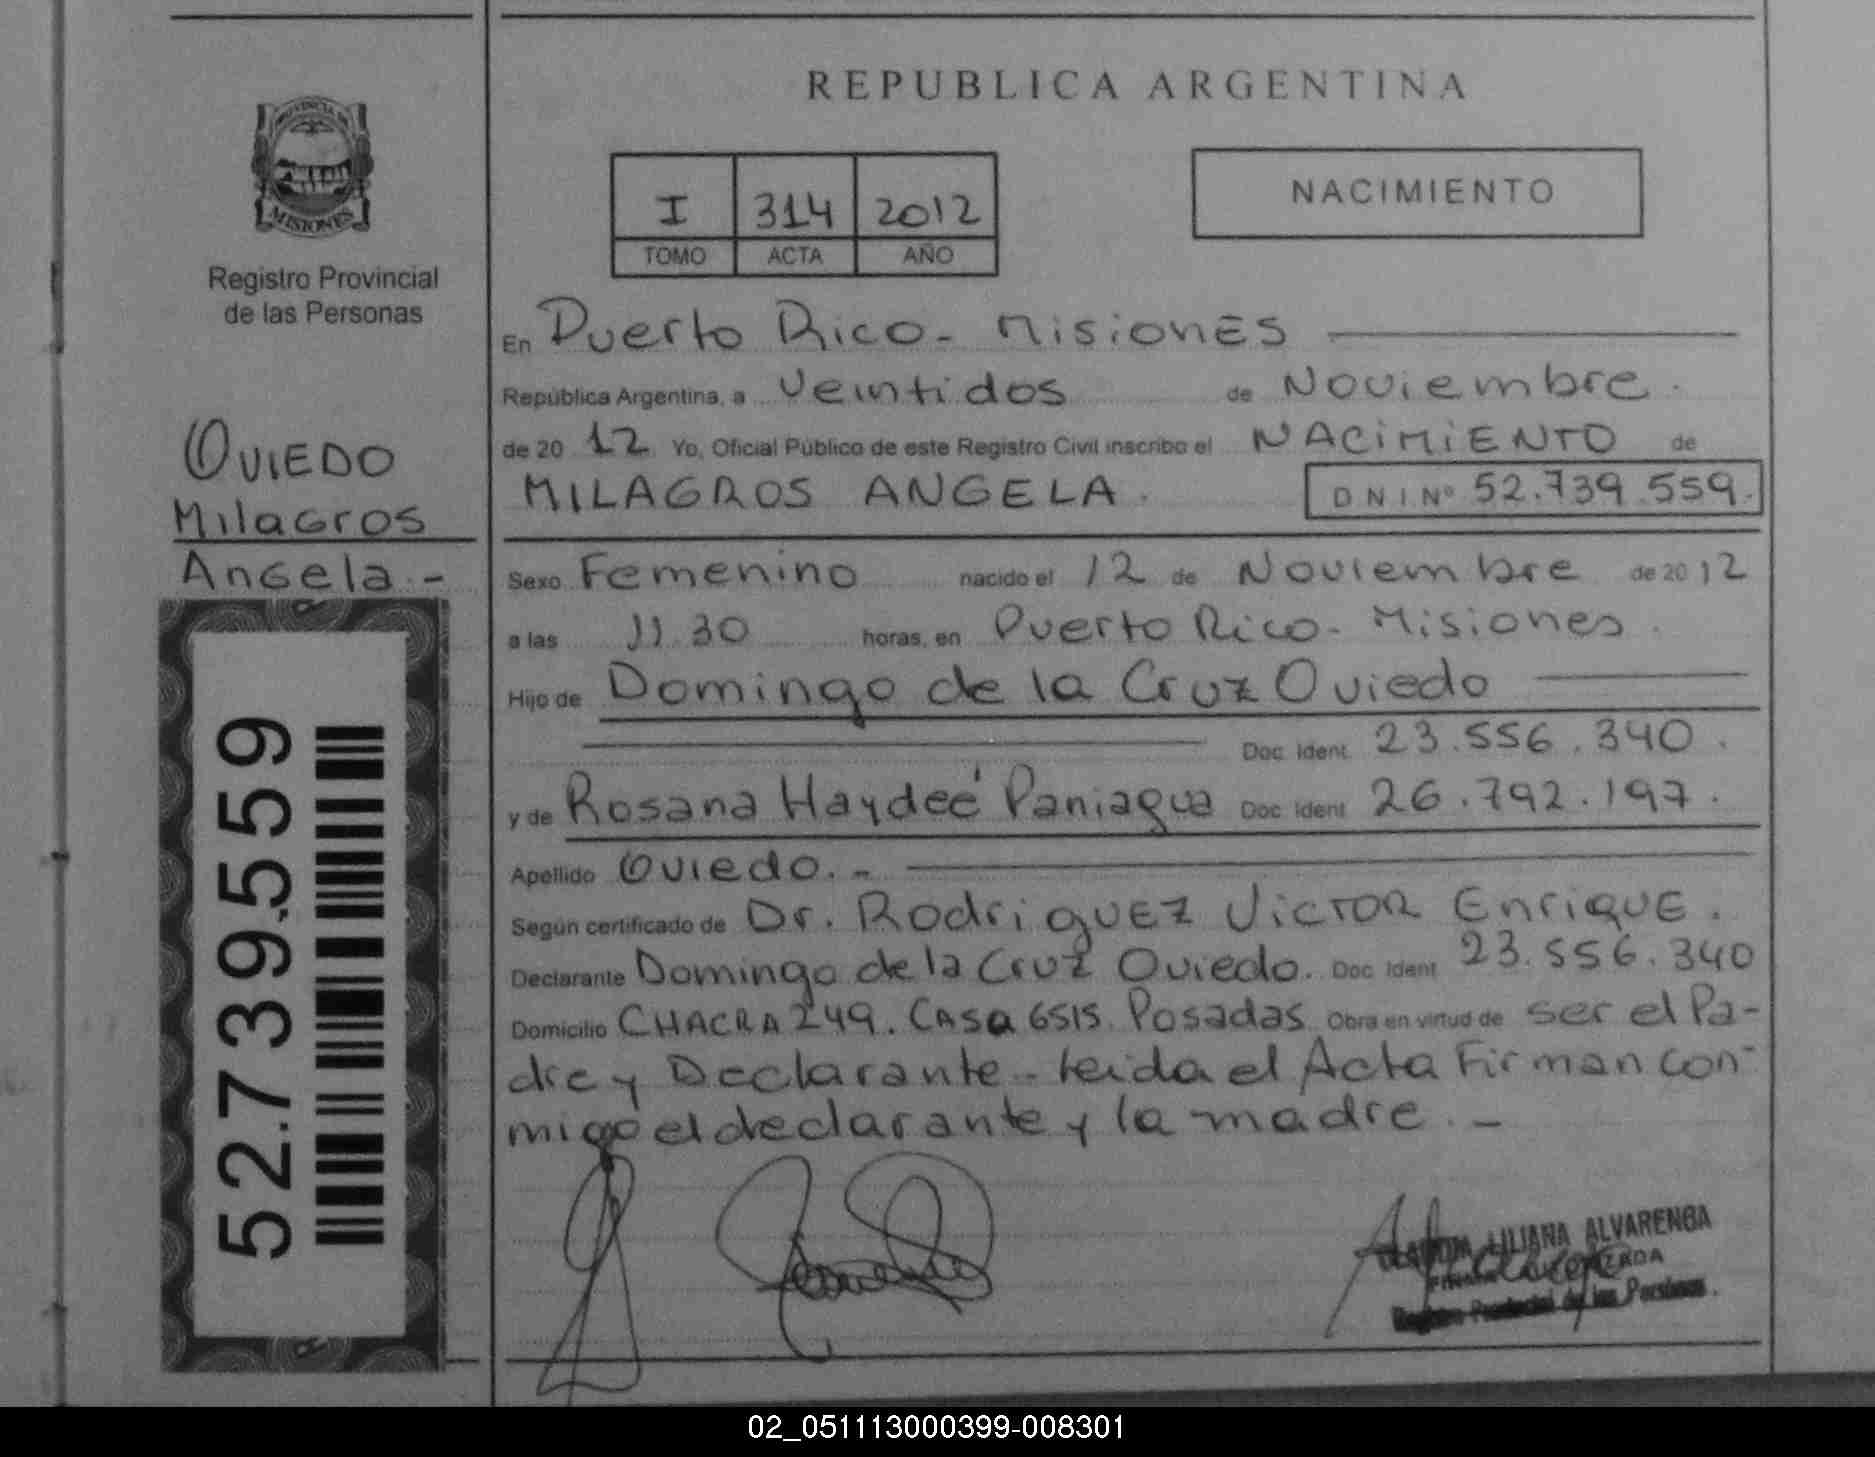 REPUBLICA ARGENTINA
PROVINCIA DE
MISIONES
Registro Provincial
de las Personas
I 314 2012
TOMO ACTA AÑO
NACIMIENTO
OVIEDO
Milagros
Angela.-
52.739.559
En Puerto Rico - Misiones
República Argentina, a Veintidos de Noviembre.
de 2012 Yo, Oficial Público de este Registro Civil inscribo el NACIMIENTO de
MILAGROS ANGELA. DNI Nº 52.739.559.
Sexo Femenino nacido el 12 de Noviembre de 2012
a las 11.30 horas, en Puerto Rico - Misiones.
Hijo de Domingo de la Cruz Oviedo
Doc. Ident. 23.556.340.
y de Rosana Haydeé Paniagua Doc. Ident. 26.792.197.
Apellido Oviedo.-
Según certificado de Dr. Rodriguez Victor Enrique.
Declarante Domingo de la Cruz Oviedo. Doc. Ident. 23.556.340
Domicilio CHACRA 249. Casa 6515. Posadas Obra en virtud de ser el Pa-
dre y Declarante - Leida el Acta Firman con-
migo el declarante y la madre.-
LILIANA ALVARENGA
Registro Provincial de las Personas.
02_051113000399-008301